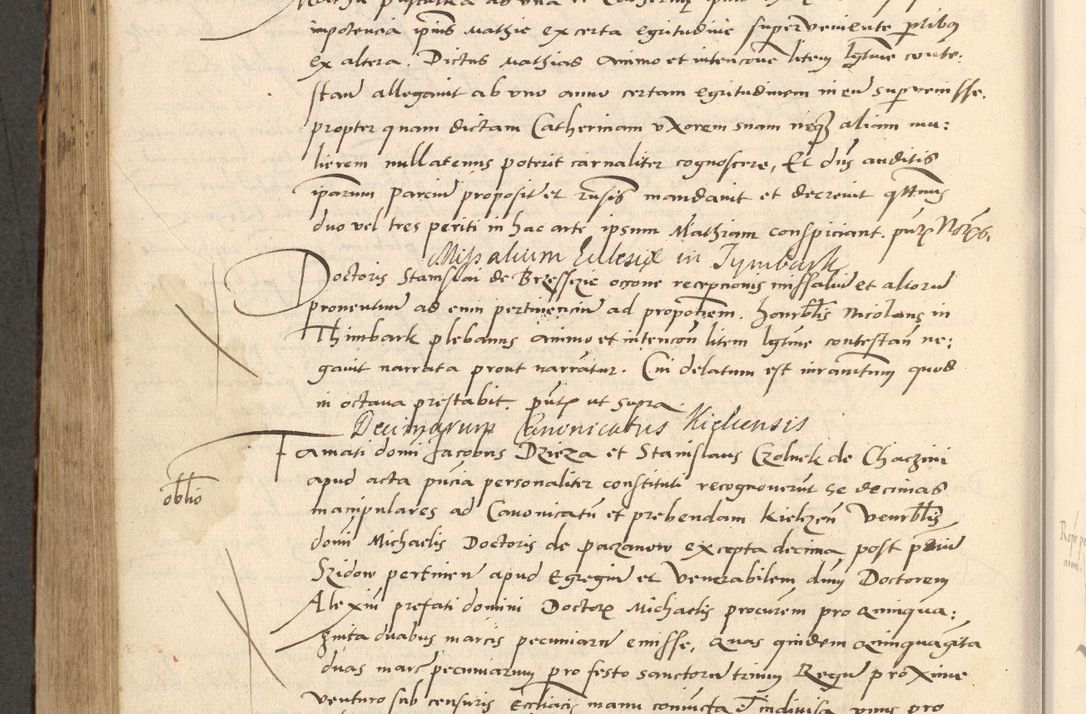 impotencia ipius Mathie ex certa egritudine superveniente ptibus
ex altera. Dictus Mathias animo et intencone litem lgtime conte-
stan allegavit ab uno anno certam egritudinem in eum supervenisse,
propter quam dictam Catherinam uxorem suam neqz aliam mu-
lierem nullatenus poterit carnaliter cognoscere, Et dns auditis
iparum parciu proposit et mandavit et decrevit qttnus
duo vel tres periti in hac arte ipsum Mathiam conspiciant.
Missalium Ecclesie in Tymbark
Doctoris Stanislai de Brzesszie occone recepcionis missaliu et alioru
proventuum ad eum pertinenciu ad propotiem. honrblis Nicolaus in
Thimbark plebanus animo et intencon litem lgtime contestan ne-
gavit narrata prout narratur. Cui delatum est iuramtum quod
in octava prestabit. put ut supra
Decimarum Canonicatus Kielcensis
Famati domi Jacobus Dzieza et Stanislaus Czolnek de Chaczini
apud acta pncia personaliter constituti recognoverut se decimas
obllo
manipulares ad Canonicatu et prebendam Kielczen Venrblis
domi Michaelis Doctoris de paczanow excepta decima post
Szidow pertinen apud Egregiu et Venerabilem dnm Doctorem
Alexiu prefati domini Doctoris Michaelis procurem pro Quinqua-
ginta duabus marcis pecuniaru emisse, Quas quidem Quinquaginta
duas marc pecuniarum pro festo sanctoru trium Regu proxime
venturo sub censuris Ecclicis manu coniucta et indivisa unus pro